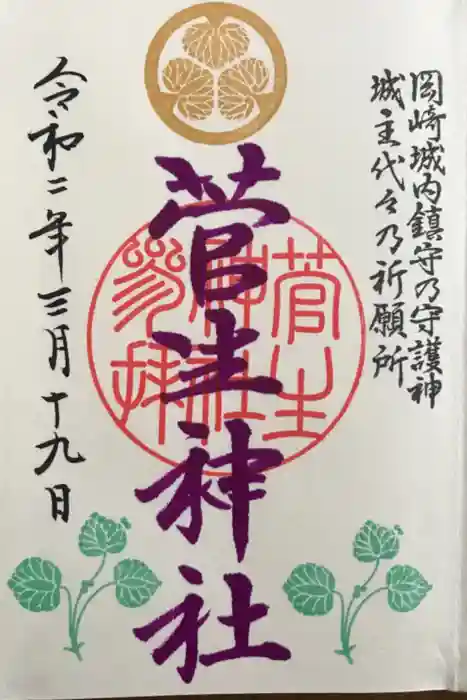 岡崎城内鎮守乃守護神
城主代々乃祈願所
菅生神社
菅生
神社
参拝
令和二年三月十九日